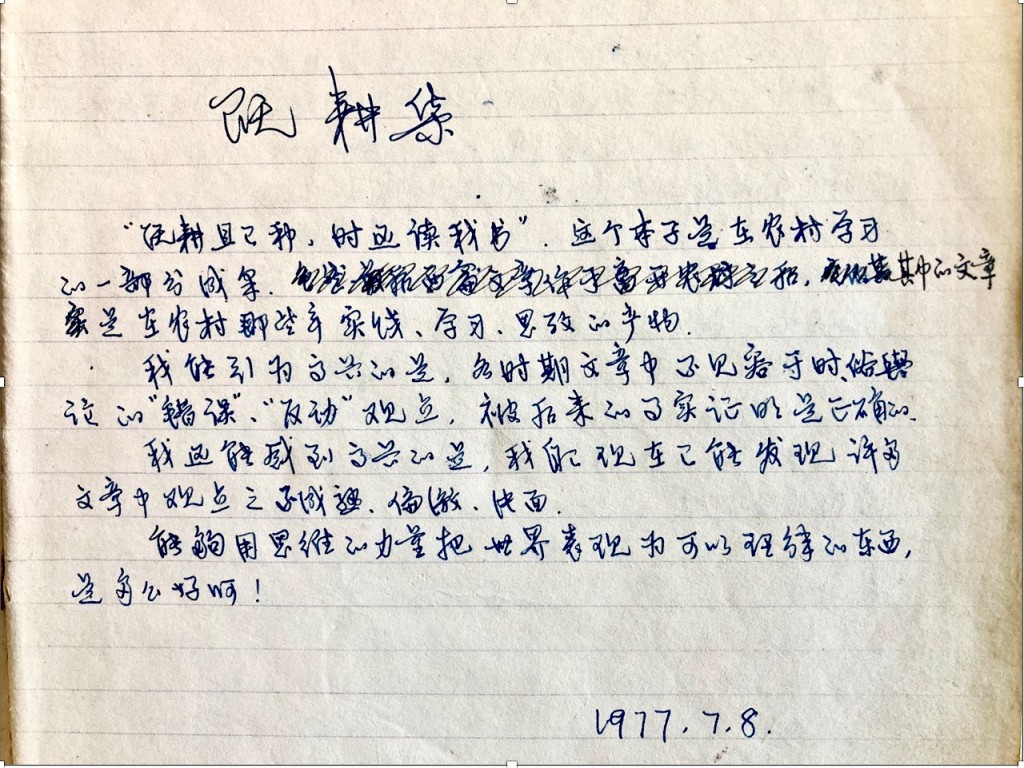 既耕集
“既耕且已种，时还读我书”. 这个本子是在农村学习
的一部分成果. 其中的文章
是在农村那些年实践、学习、思考的产物.
我能引为高兴的是, 各时期文章中不见容于时俗舆
论的“错误”、“反动”观点, 被后来的事实证明是正确的.
我还能感到高兴的是, 我自己现在已能发现许多
文章中观点之不成熟、偏激、片面.
能够用思维的力量把世界表现为可以理解的东西,
是多么好啊!
1977.7.8.